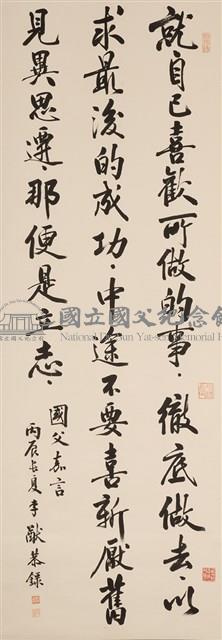 就自己喜歡所做的事徹底做去以
求最後的成功中途不要喜新厭舊
見異思遷那便是立志
國父嘉言
丙辰長夏李猷恭錄
國立國父紀念館
National Dr. Sun Yat-sen Memorial Hall